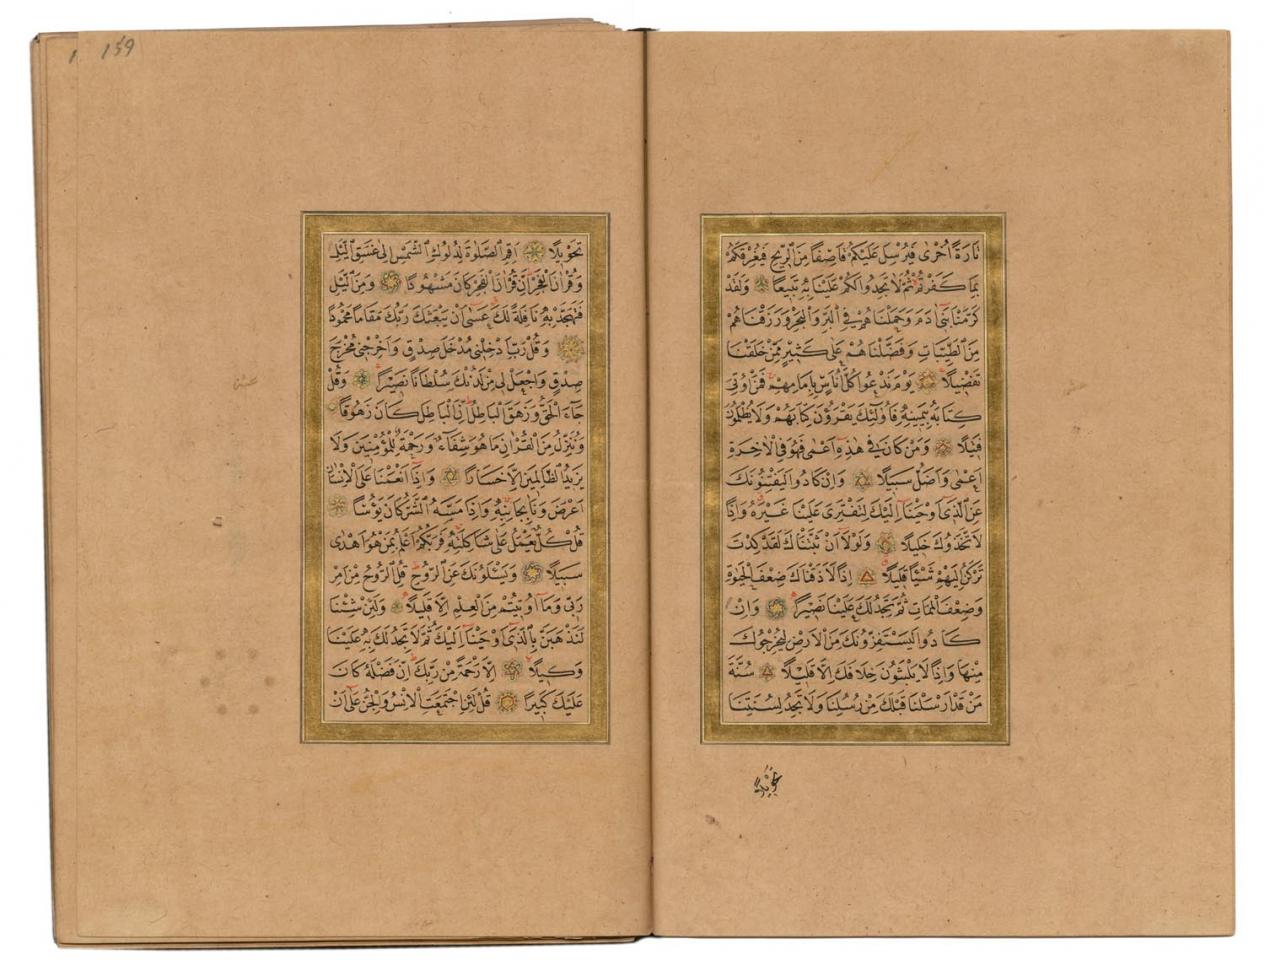 تَارَةً أُخْرَى فَيُرْسِلَ عَلَيْكُمْ قَاصِفًا مِنَ الرِّيحِ فَيُغْرِقَكُمْ
بِمَا كَفَرْتُمْ ثُمَّ لَا تَجِدُوا لَكُمْ عَلَيْنَا بِهِ تَبِيعًا وَلَقَدْ
كَرَّمْنَا بَنِي آدَمَ وَحَمَلْنَاهُمْ فِي الْبَرِّ وَالْبَحْرِ وَرَزَقْنَاهُمْ
مِنَ الطَّيِّبَاتِ وَفَضَّلْنَاهُمْ عَلَى كَثِيرٍ مِمَّنْ خَلَقْنَا
تَفْضِيلًا يَوْمَ نَدْعُوا كُلَّ أُنَاسٍ بِإِمَامِهِمْ فَمَنْ أُوتِيَ
كِتَابَهُ بِيَمِينِهِ فَأُولَئِكَ يَقْرَؤُنَ كِتَابَهُمْ وَلَا يُظْلَمُونَ
فَتِيلًا وَمَنْ كَانَ فِي هَذِهِ أَعْمَى فَهُوَ فِي الْآخِرَةِ
أَعْمَى وَأَضَلُّ سَبِيلًا وَإِنْ كَادُوا لَيَفْتِنُونَكَ
عَنِ الَّذِي أَوْحَيْنَا إِلَيْكَ لِتَفْتَرِيَ عَلَيْنَا غَيْرَهُ وَإِذًا
لَاتَّخَذُوكَ خَلِيلًا وَلَوْلَا أَنْ ثَبَّتْنَاكَ لَقَدْ كِدْتَ
تَرْكَنُ إِلَيْهِمْ شَيْئًا قَلِيلًا إِذًا لَأَذَقْنَاكَ ضِعْفَ الْحَيَوةِ
وَضِعْفَ الْمَمَاتِ ثُمَّ لَا تَجِدُ لَكَ عَلَيْنَا نَصِيرًا وَإِنْ
كَادُوا لَيَسْتَفِزُّونَكَ مِنَ الْأَرْضِ لِيُخْرِجُوكَ
مِنْهَا وَإِذًا لَا يَلْبَثُونَ خِلَافَكَ إِلَّا قَلِيلًا سُنَّةَ
مَنْ قَدْ أَرْسَلْنَا قَبْلَكَ مِنْ رُسُلِنَا وَلَا تَجِدُ لِسُنَّتِنَا
تَحْوِيلًا
١٥٩
تَحْوِيلًا أَقِمِ الصَّلَاةَ لِدُلُوكِ الشَّمْسِ إِلَى غَسَقِ اللَّيْلِ
وَقُرْآنَ الْفَجْرِ إِنَّ قُرْآنَ الْفَجْرِ كَانَ مَشْهُودًا وَمِنَ اللَّيْلِ
فَتَهَجَّدْ بِهِ نَافِلَةً لَكَ عَسَى أَنْ يَبْعَثَكَ رَبُّكَ مَقَامًا مَحْمُودًا
وَقُلْ رَبِّ أَدْخِلْنِي مُدْخَلَ صِدْقٍ وَأَخْرِجْنِي مُخْرَجَ
صِدْقٍ وَاجْعَلْ لِي مِنْ لَدُنْكَ سُلْطَانًا نَصِيرًا وَقُلْ
جَاءَ الْحَقُّ وَزَهَقَ الْبَاطِلُ إِنَّ الْبَاطِلَ كَانَ زَهُوقًا
وَنُنَزِّلُ مِنَ الْقُرْآنِ مَا هُوَ شِفَاءٌ وَرَحْمَةٌ لِلْمُؤْمِنِينَ وَلَا
يَزِيدُ الظَّالِمِينَ إِلَّا خَسَارًا وَإِذَا أَنْعَمْنَا عَلَى الْإِنْسَانِ
أَعْرَضَ وَنَأَ بِجَانِبِهِ وَإِذَا مَسَّهُ الشَّرُّ كَانَ يَؤُسًا
قُلْ كُلٌّ يَعْمَلُ عَلَى شَاكِلَتِهِ فَرَبُّكُمْ أَعْلَمُ بِمَنْ هُوَ أَهْدَى
سَبِيلًا وَيَسْأَلُونَكَ عَنِ الرُّوحِ قُلِ الرُّوحُ مِنْ أَمْرِ
رَبِّي وَمَا أُوتِيتُمْ مِنَ الْعِلْمِ إِلَّا قَلِيلًا وَلَئِنْ شِئْنَا
لَنَذْهَبَنَّ بِالَّذِي أَوْحَيْنَا إِلَيْكَ ثُمَّ لَا تَجِدُ لَكَ بِهِ عَلَيْنَا
وَكِيلًا إِلَّا رَحْمَةً مِنْ رَبِّكَ إِنَّ فَضْلَهُ كَانَ
عَلَيْكَ كَبِيرًا قُلْ لَئِنِ اجْتَمَعَتِ الْإِنْسُ وَالْجِنُّ عَلَى أَنْ